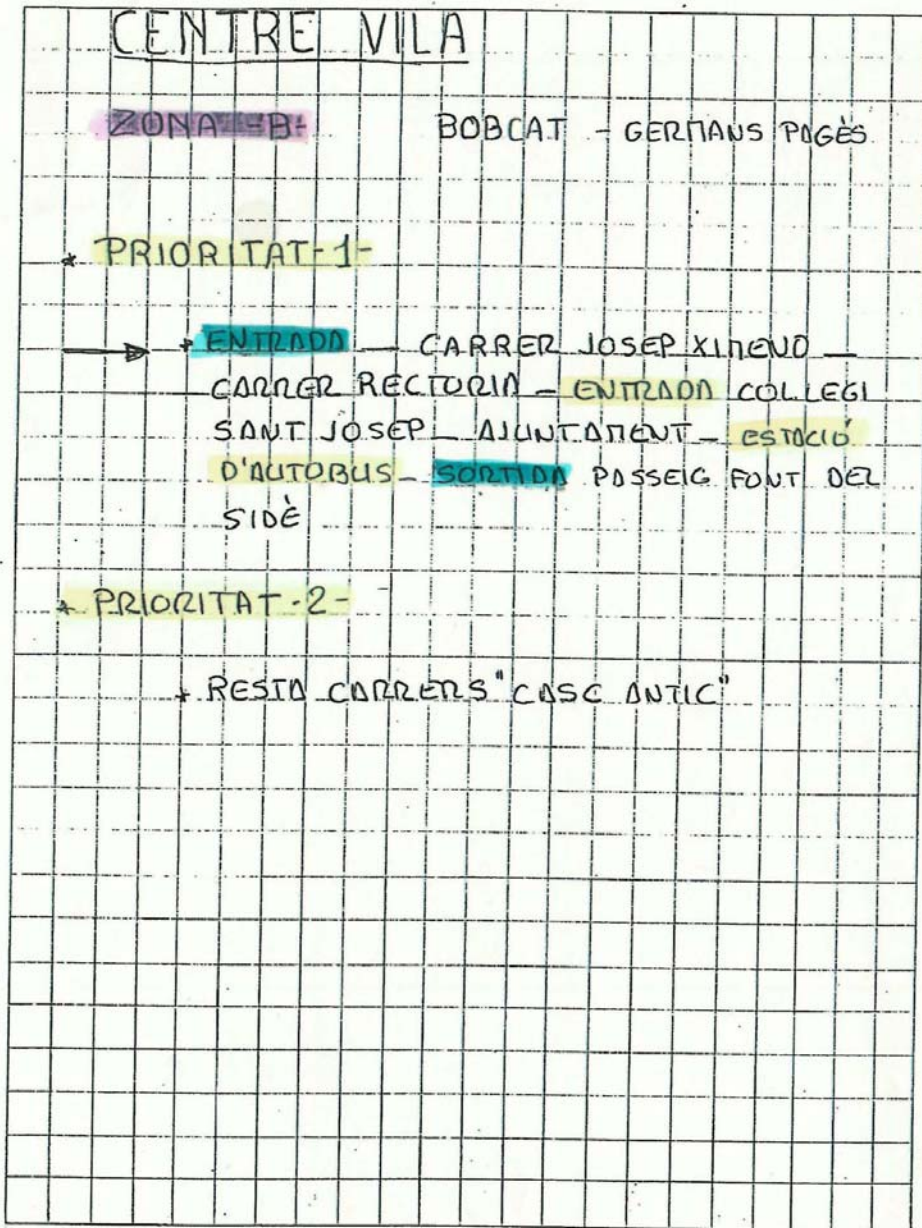 CENTRE VILA
ZONA -B- BOBCAT - GERMANS PAGÈS
* PRIORITAT -1-
* ENTRADA — CARRER JOSEP XIMENO —
CARRER RECTORIA - ENTRADA COL.LEGI
SANT JOSEP - AJUNTAMENT - ESTACIÓ
D'AUTOBUS - SORTIDA PASSEIG FONT DEL
SIDÈ
* PRIORITAT -2-
* RESTA CARRERS "CASC ANTIC"